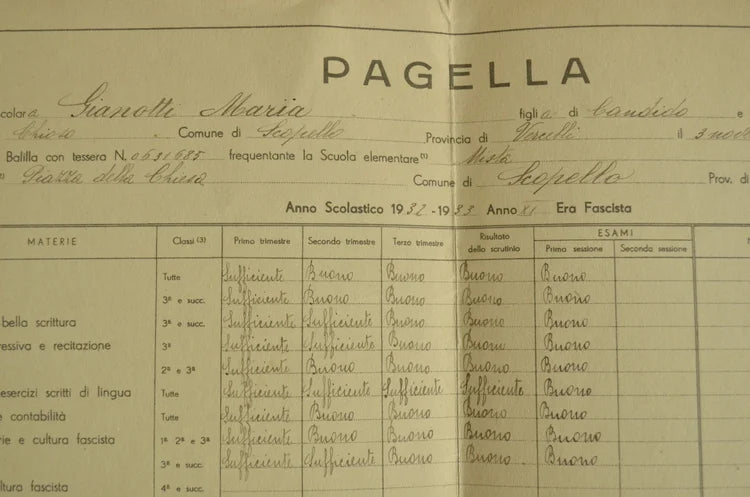 PAGELLA
colara Gianotti Maria figlia di Candido e
Chiesa Comune di Scopello Provincia di Vercelli il 3 nove
Balilla con tessera N. 0631685 frequentante la Scuola elementare(1) Mista
Piazza della Chiesa Comune di Scopello Prov. di
Anno Scolastico 1932-1933 Anno XI Era Fascista
MATERIE Classi (3) Primo trimestre Secondo trimestre Terzo trimestre Risultato dello scrutinio ESAMI Prima sessione Seconda sessione
Tutte Sufficiente Buono Buono Buono Buono
3ª e succ. Sufficiente Buono Buono Buono Buono
bella scrittura 3ª e succ. Sufficiente Sufficiente Buono Buono Buono
ressiva e recitazione 3ª Sufficiente Sufficiente Buono Buono Buono
2ª e 3ª Sufficiente Buono Buono Buono Buono
esercizi scritti di lingua Tutte Sufficiente Sufficiente Sufficiente Sufficiente Buono
e contabilità Tutte Sufficiente Buono Buono Buono Buono
rie e cultura fascista 1ª 2ª e 3ª Sufficiente Buono Buono Buono Buono
3ª e succ. Sufficiente Sufficiente Buono Buono Buono
ltura fascista 4ª e succ.